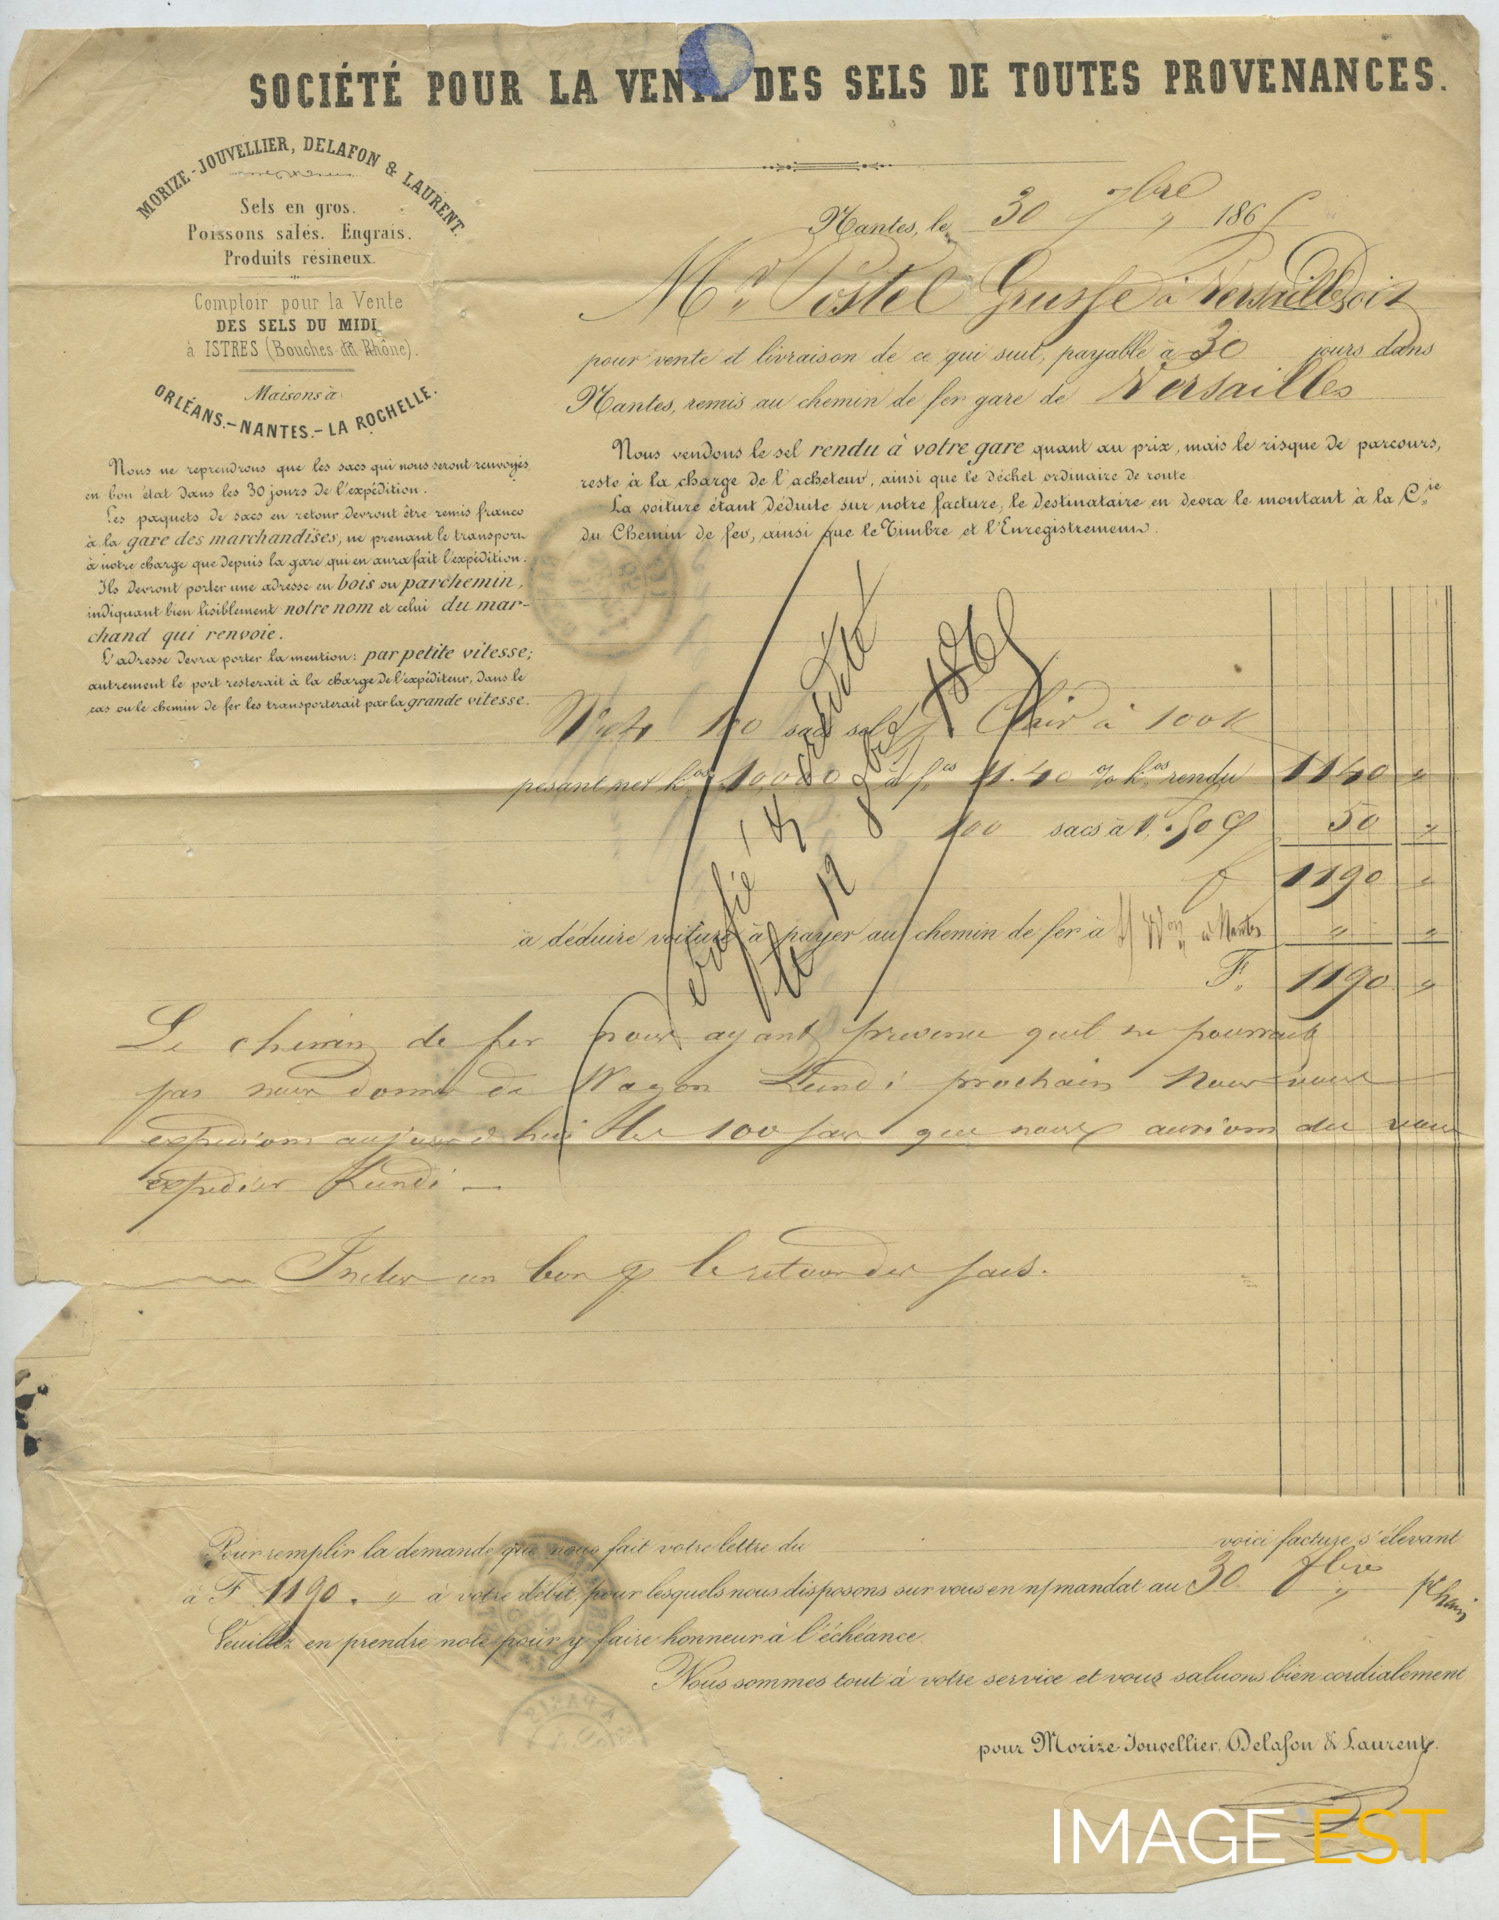 SOCIÉTÉ POUR LA VENTE DES SELS DE TOUTES PROVENANCES.
MORIZE-JOUVELLIER, DELAFON & LAURENT.
Sels en gros.
Poissons salés. Engrais.
Produits résineux.
Comptoir pour la Vente
DES SELS DU MIDI
à ISTRES (Bouches du Rhône).
Maisons à
ORLÉANS.-NANTES.-LA ROCHELLE.
Nous ne reprendrons que les sacs qui nous seront renvoyés
en bon état dans les 30 jours de l'expédition.
Les paquets de sacs en retour devront être remis franco
à la gare des marchandises, ne prenant le transport
à notre charge que depuis la gare qui en aura fait l'expédition.
Ils devront porter une adresse en bois ou parchemin,
indiquant bien lisiblement notre nom et celui du mar-
chand qui renvoie.
L'adresse devra porter la mention: par petite vitesse;
autrement le port resterait à la charge de l'expéditeur, dans le
cas ou le chemin de fer les transporterait par la grande vitesse.
Nantes, le 30 7bre 186
Mr Postel Grusse à Versailles Doit
pour vente et livraison de ce qui suit, payable à 30 jours dans
Nantes, remis au chemin de fer gare de Versailles
Nous vendons le sel rendu à votre gare quant au prix, mais le risque de parcours,
reste à la charge de l'acheteur, ainsi que le déchet ordinaire de route
La voiture étant déduite sur notre facture, le destinataire en devra le montant à la Cie
du Chemin de fer, ainsi que le Timbre et l'Enregistrement.
100 sacs sel à 100 K
pesant net kos 10,000 à fcs 11.40 % kos rendu 1140 "
100 sacs à 50 50 "
f 1190 "
à déduire voiture à payer au chemin de fer à Won à Nantes " "
F. 1190 "
vérifié & crédité
le 12 8bre 186
Le chemin de fer nous ayant prevenu quil ne pourrait
pas nous donner de Wagon Lundi prochain Nous vous
expedions aujourd'hui les 100 sacs que nous aurions du vous
expedier Lundi —
Inclus un bon pr le retour des sacs.
Pour remplir la demande que nous fait votre lettre du voici facture s'élevant
à F 1190. " à votre débit, pour lesquels nous disposons sur vous en n/mandat au 30 pchain
Veuillez en prendre note pour y faire honneur à l'échéance.
Nous sommes tout à votre service et vous saluons bien cordialement
pour Morize Jouvellier, Delafon & Laurent.
IMAGE EST